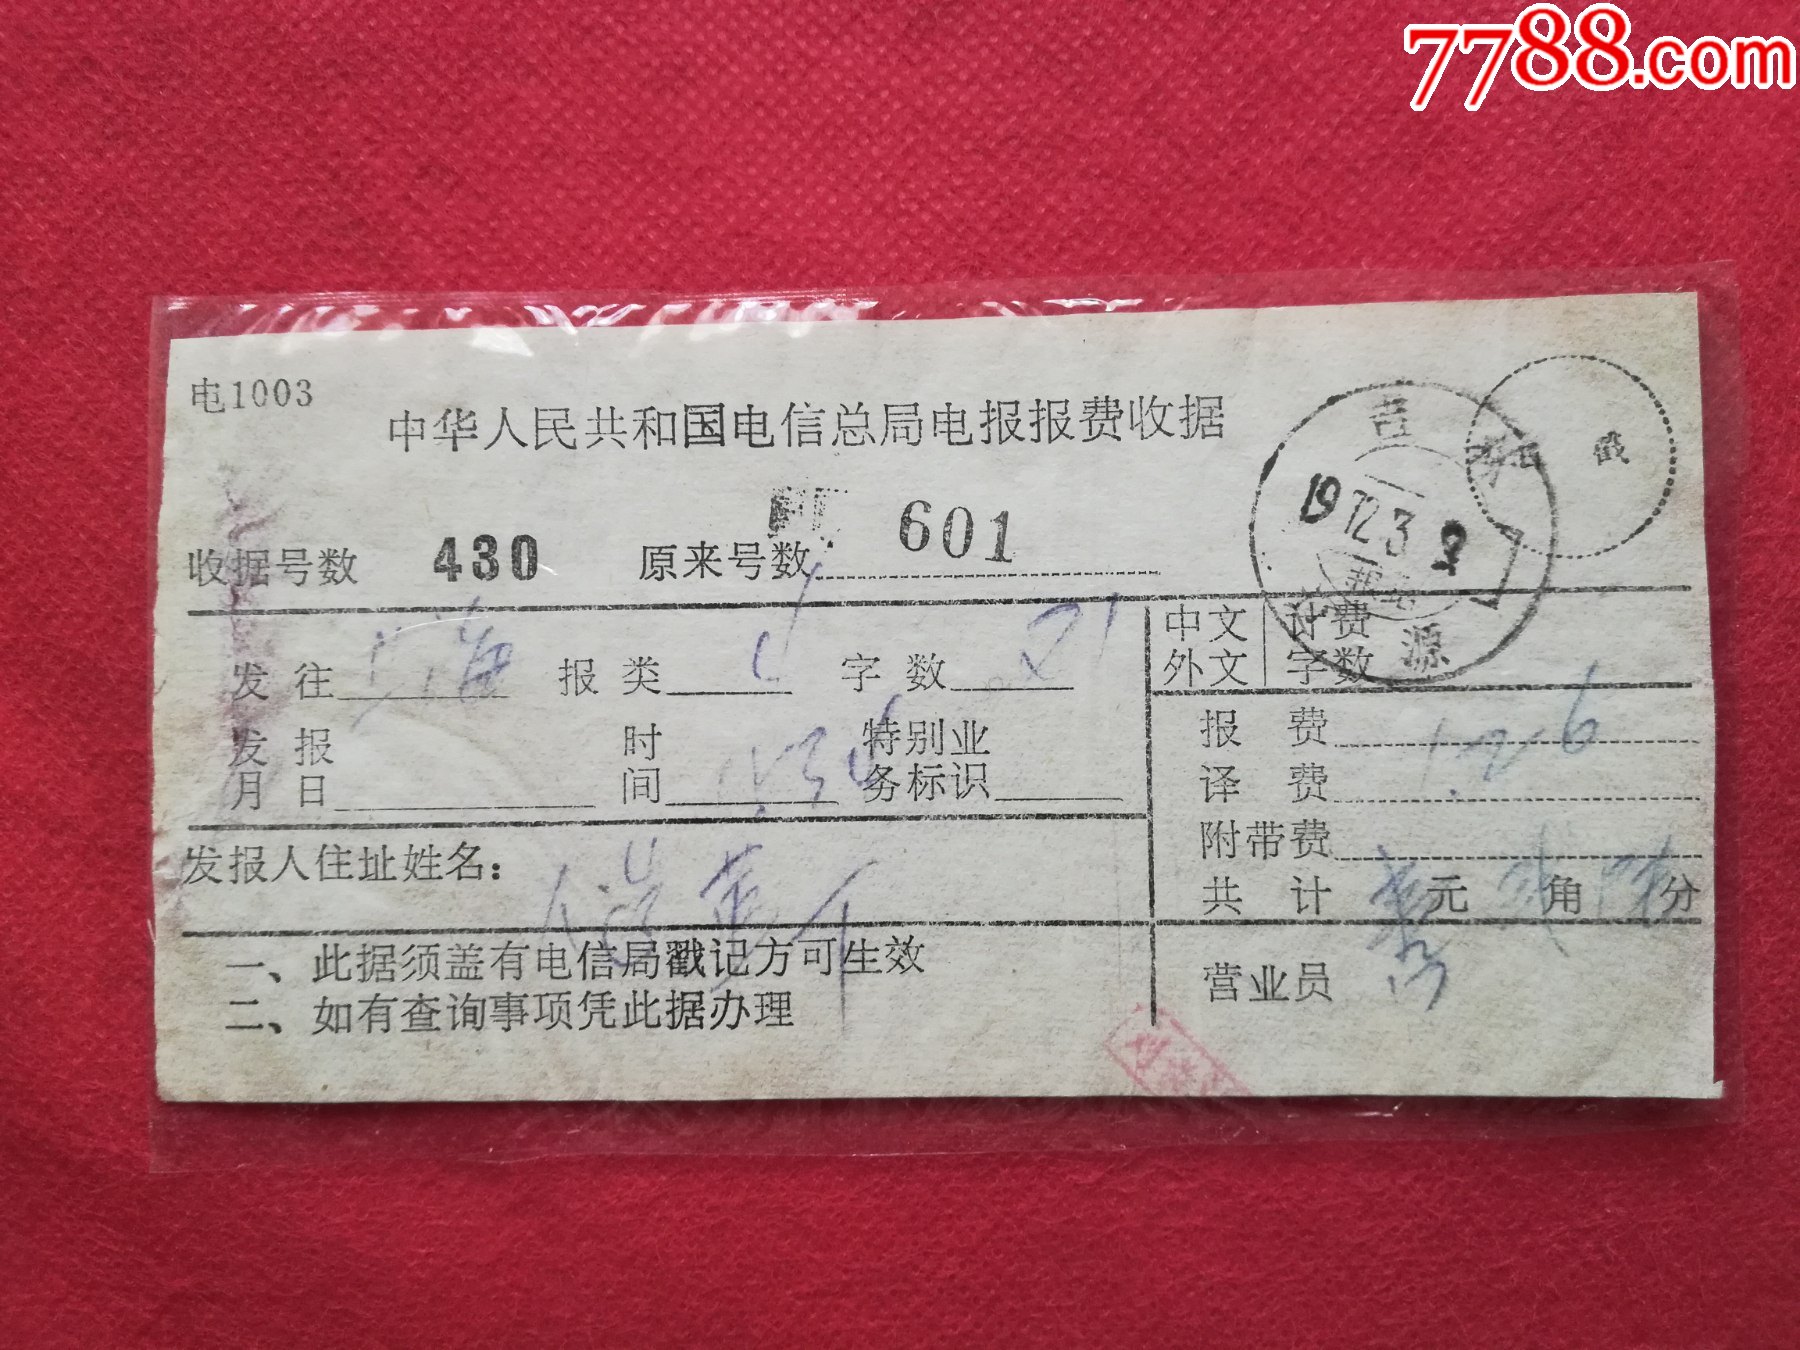 7788.com
电1003
中华人民共和国电信总局电报报费收据
吉林
日戳
19 72.3 9
辽源
收据号数 430 原来号数 601
发往 上海 报类 字数 21
中文 外文 计费字数
发报月日 时间 特别业务标识
报费 1.26
译费
附带费
共计 壹元贰角陆分
发报人住址姓名：
一、此据须盖有电信局戳记方可生效
二、如有查询事项凭此据办理
营业员